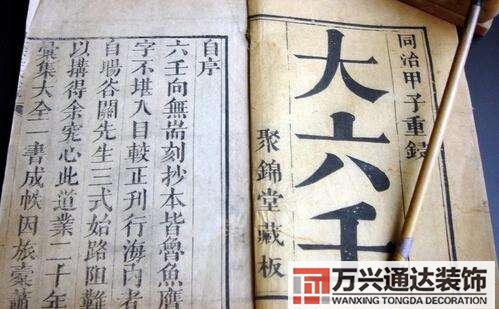 同治甲子重鐫
大六壬
聚錦堂藏板
自序
六壬向無耑刻抄本皆魯魚
字不堪入目較正刊行海內者
自場谷關先生三式始路阻難
以搆得余究心此道業二十年
彙集大全一書成帙因旅橐蕭
万兴通达装饰
WANXING TONGDA DECORATION